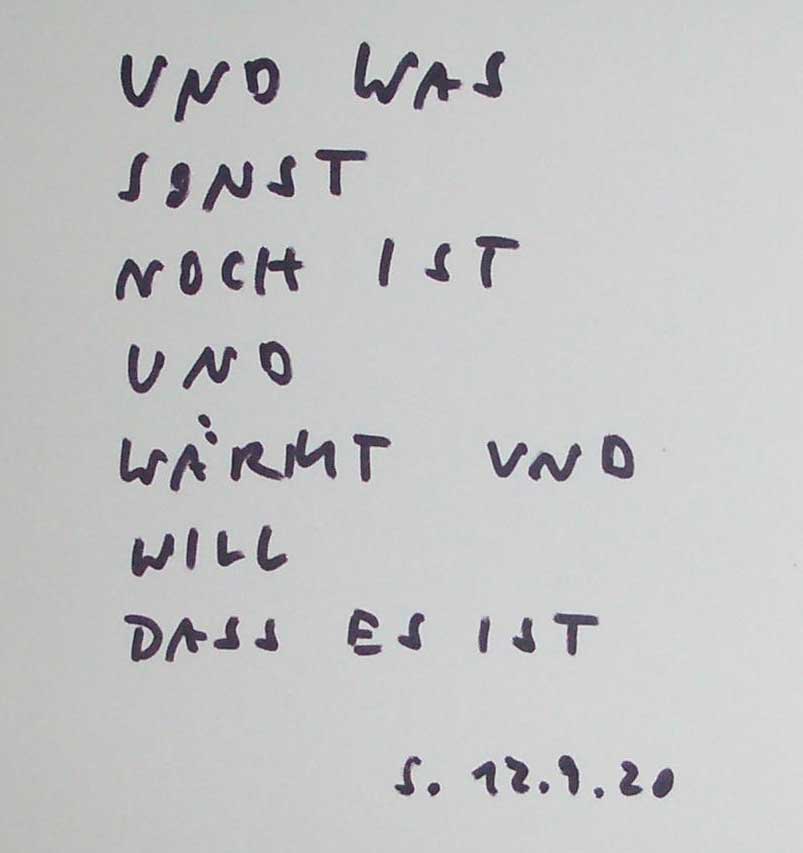 UND WAS
SONST
NOCH IST
UND
WÄRMT UND
WILL
DASS ES IST
S. 12.9.20